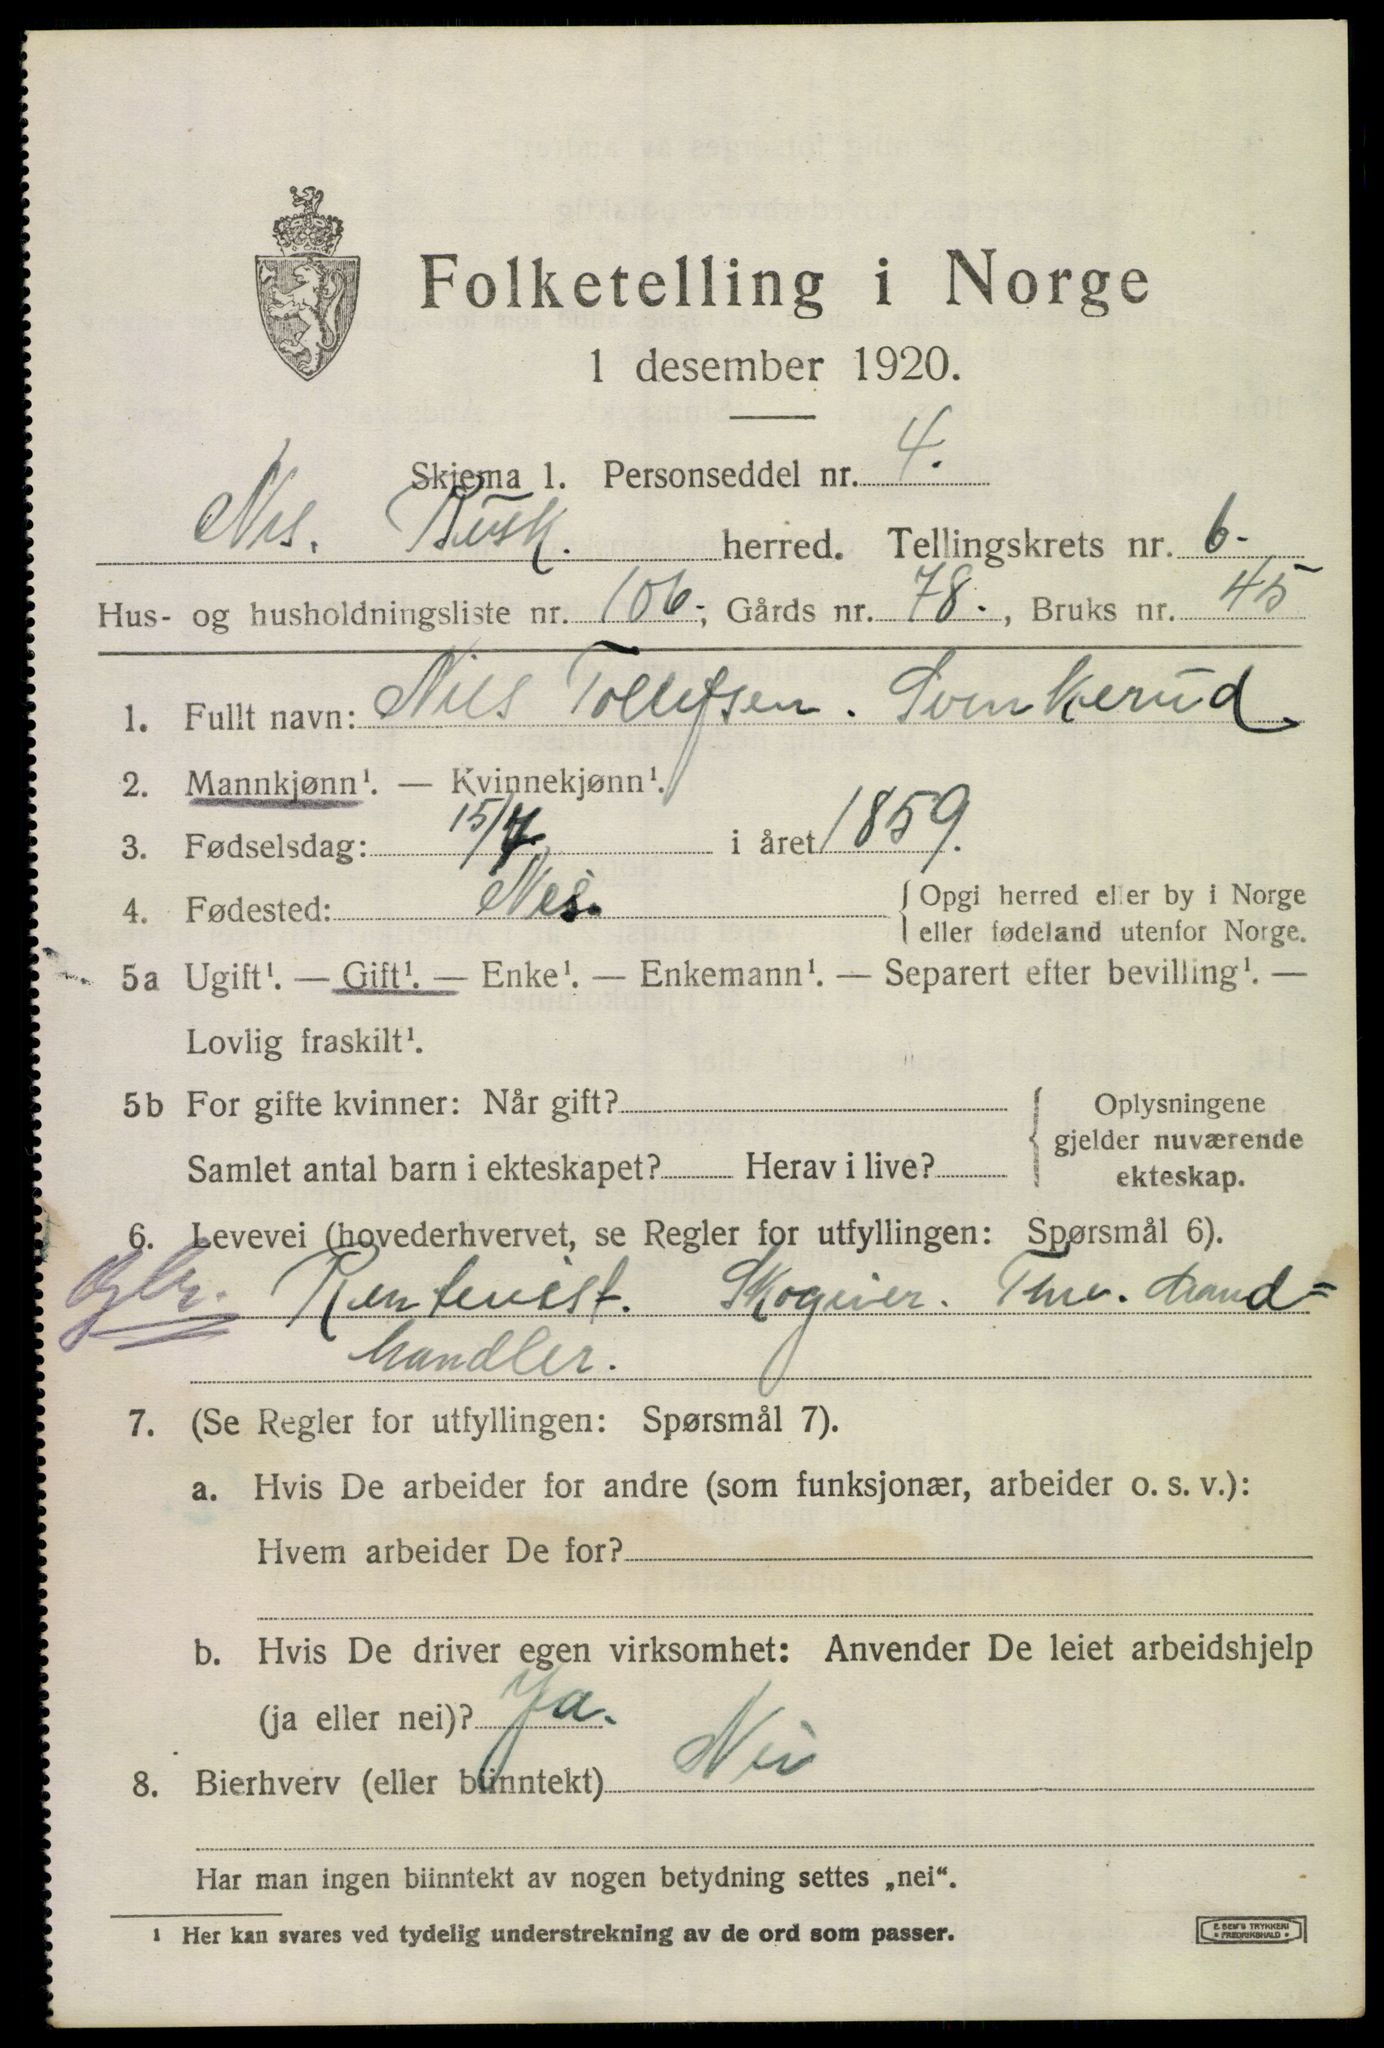 Folketelling i Norge
1 desember 1920.
Skjema 1. Personseddel nr. 4.
Nes. Busk. herred. Tellingskrets nr. 6.
Hus- og husholdningsliste nr. 106; Gårds nr. 78., Bruks nr. 45
1. Fullt navn: Nils Tollefsen. Svenkerud
2. Mannkjønn¹. — Kvinnekjønn¹.
3. Fødselsdag: 15/7 i året 1859.
4. Fødested: Nes. { Opgi herred eller by i Norge
eller fødeland utenfor Norge.
5a Ugift¹. — Gift¹. — Enke¹. — Enkemann¹. — Separert efter bevilling¹. —
Lovlig fraskilt¹.
5b For gifte kvinner: Når gift? { Oplysningene
gjelder nuværende
Samlet antal barn i ekteskapet? Herav i live? ekteskap.
6. Levevei (hovederhvervet, se Regler for utfyllingen: Spørsmål 6).
Rentenist. Skogeier.
handler.
7. (Se Regler for utfyllingen: Spørsmål 7).
a. Hvis De arbeider for andre (som funksjonær, arbeider o. s. v.):
Hvem arbeider De for?
b. Hvis De driver egen virksomhet: Anvender De leiet arbeidshjelp
(ja eller nei)? Ja.
8. Bierhverv (eller biinntekt) Nei
Har man ingen biinntekt av nogen betydning settes „nei“.
¹ Her kan svares ved tydelig understrekning av de ord som passer.
E. SEM'S TRYKKERI
• FREDRIKSHALD •